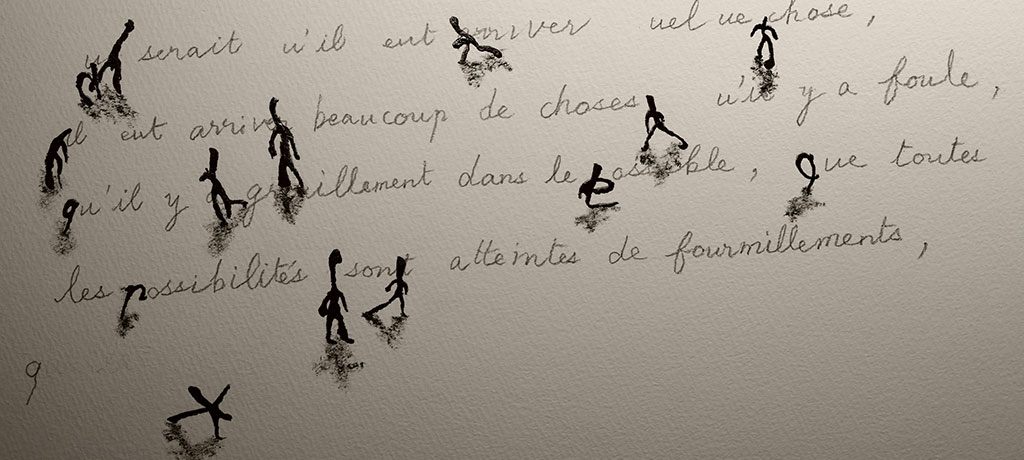 serait u'il eut arriver uel ue chose ,
il eut arriver beaucoup de choses u'il y a foule ,
qu'il y a grouillement dans le possible , que toutes
les possibilités sont atteintes de fourmillements ,
q